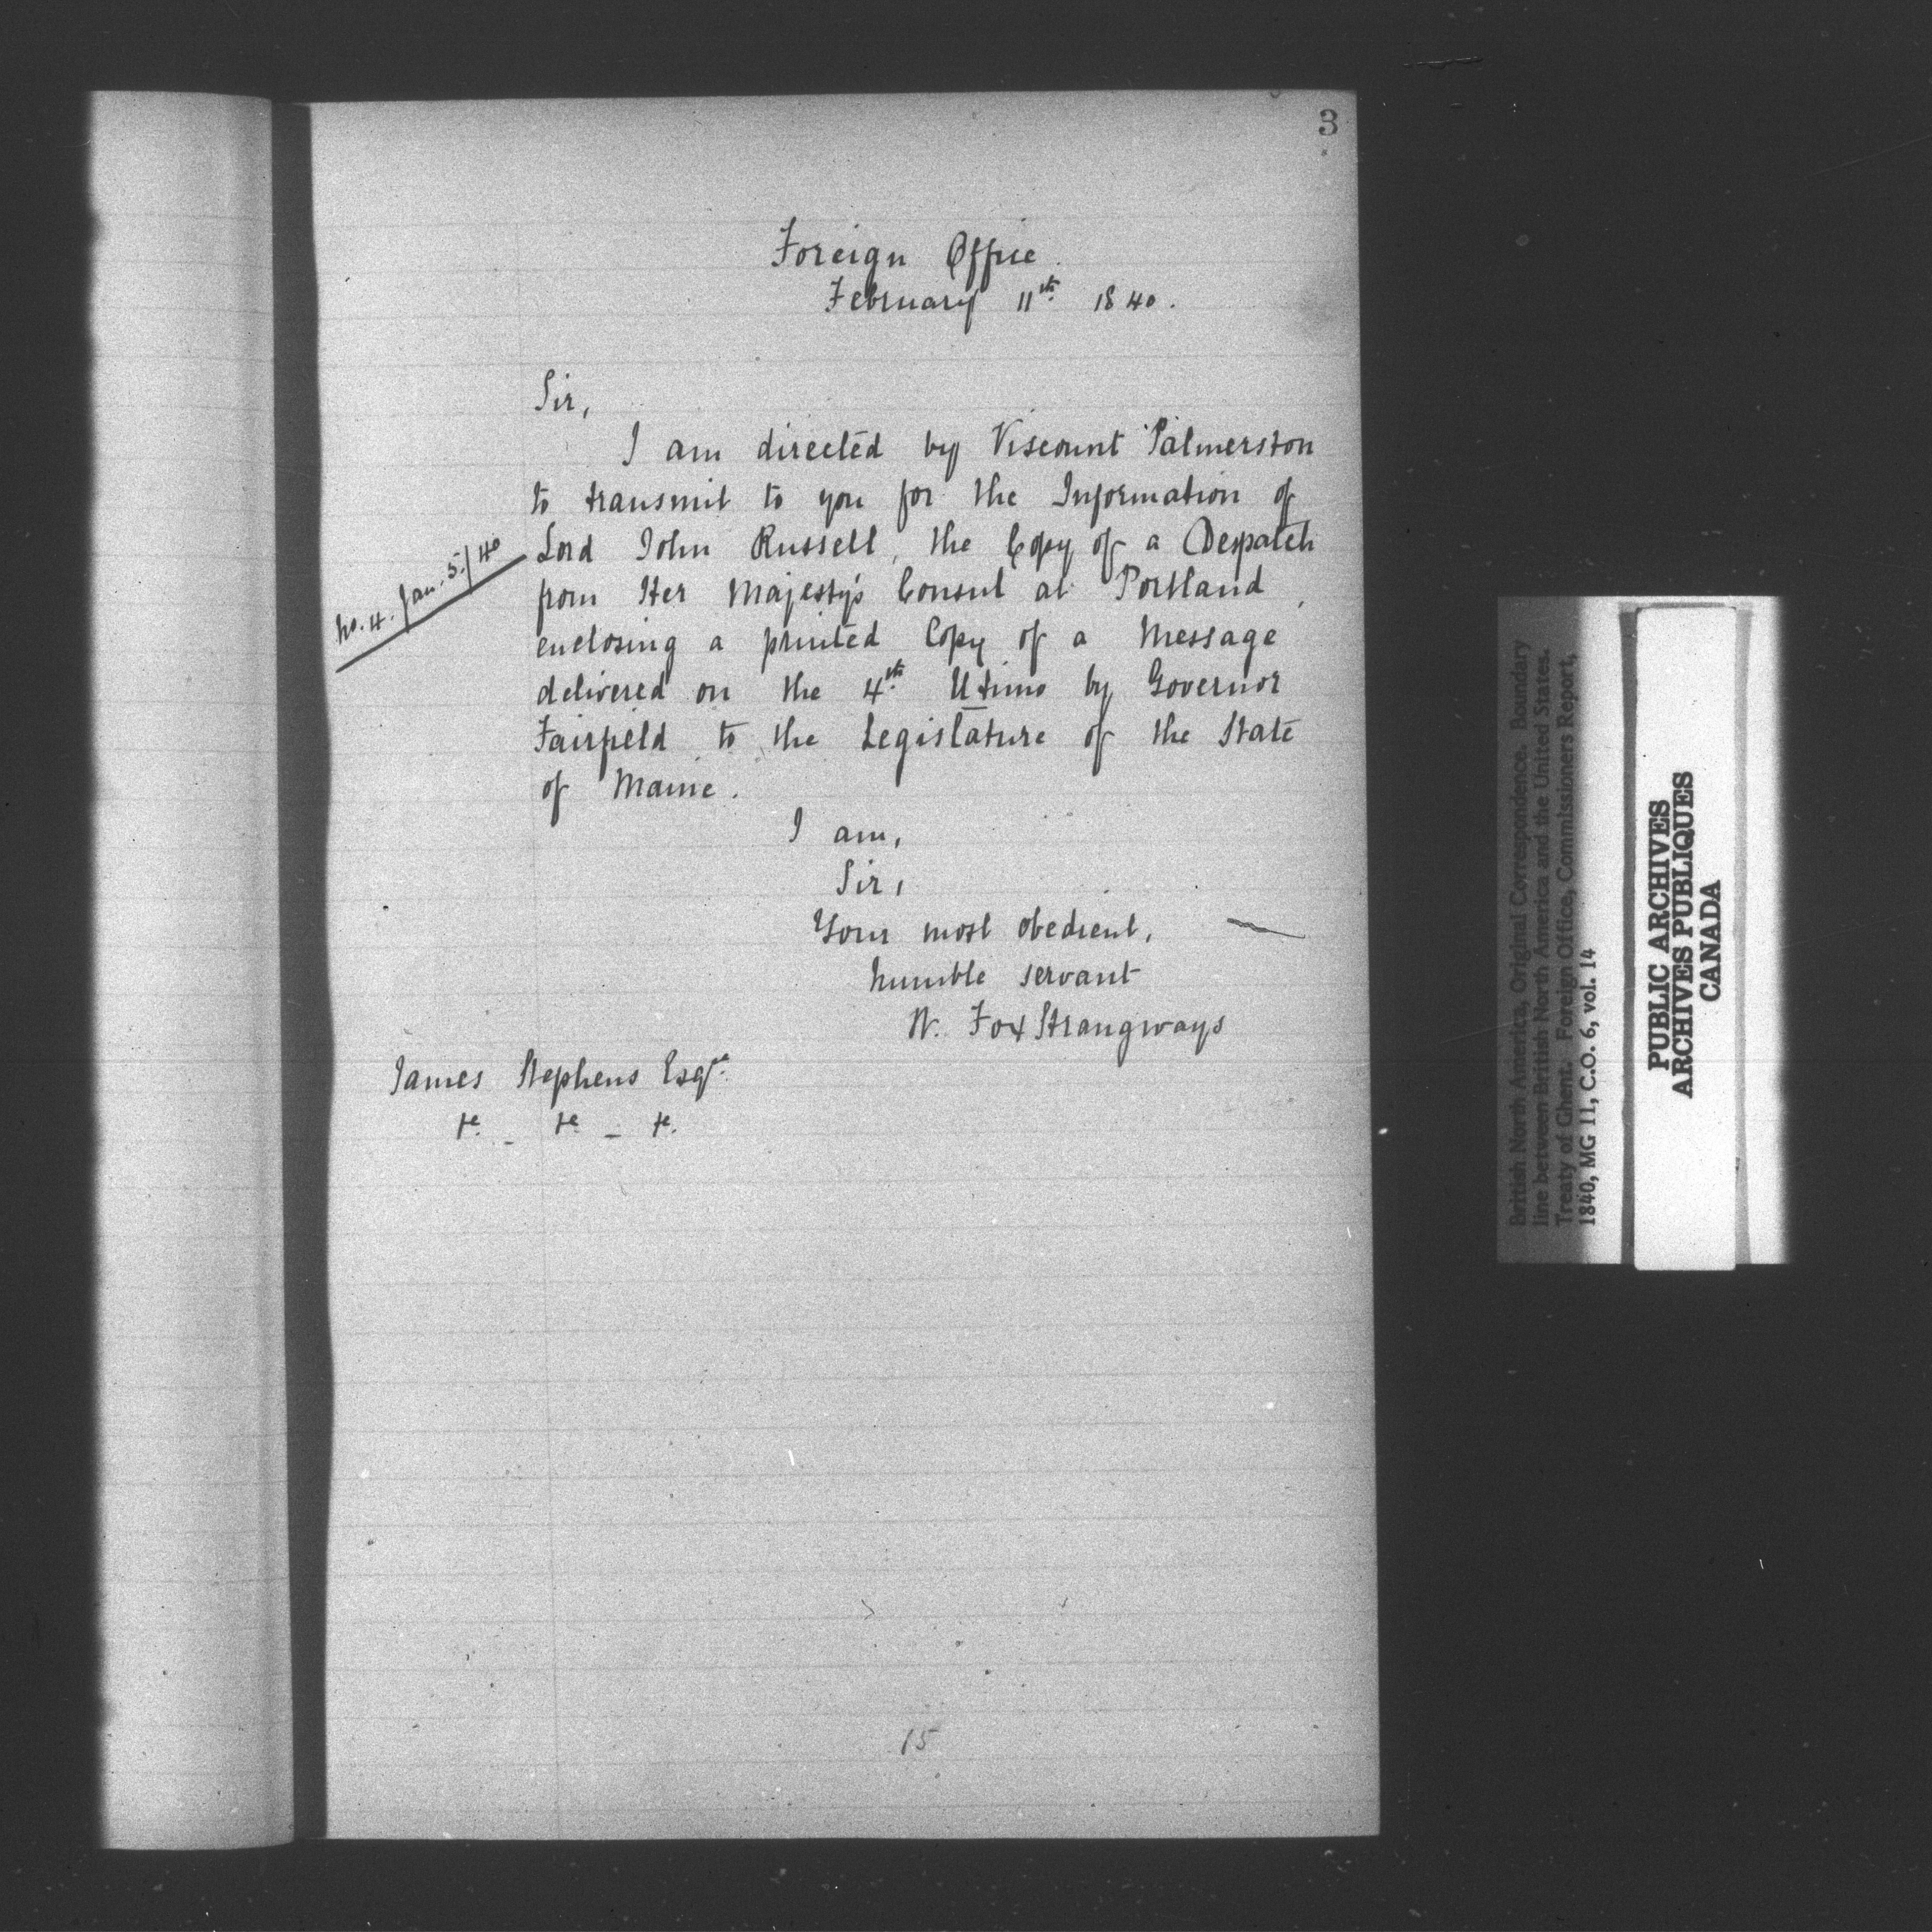 3
Foreign Office.
February 11th 1840.
Sir,
I am directed by Viscount Palmerston
to transmit to you for the Information of
No. 4. Jan. 5./40
Lord John Russell, the Copy of a Despatch
from Her Majesty's Consul at Portland,
enclosing a printed Copy of a Message
delivered on the 4th Utimo by Governor
Fairfield to the Legislature of the State
of Maine.
I am,
Sir,
Your most obedient,
humble servant
W. Fox Strangways
James Stephens Esqre.
&c. - &c. - &c.
15
British North America, Original Correspondence. Boundary
line between British North America and the United States.
Treaty of Ghent. Foreign Office, Commissioners Report,
1840, MG 11, C.O. 6, vol. 14
PUBLIC ARCHIVES
ARCHIVES PUBLIQUES
CANADA